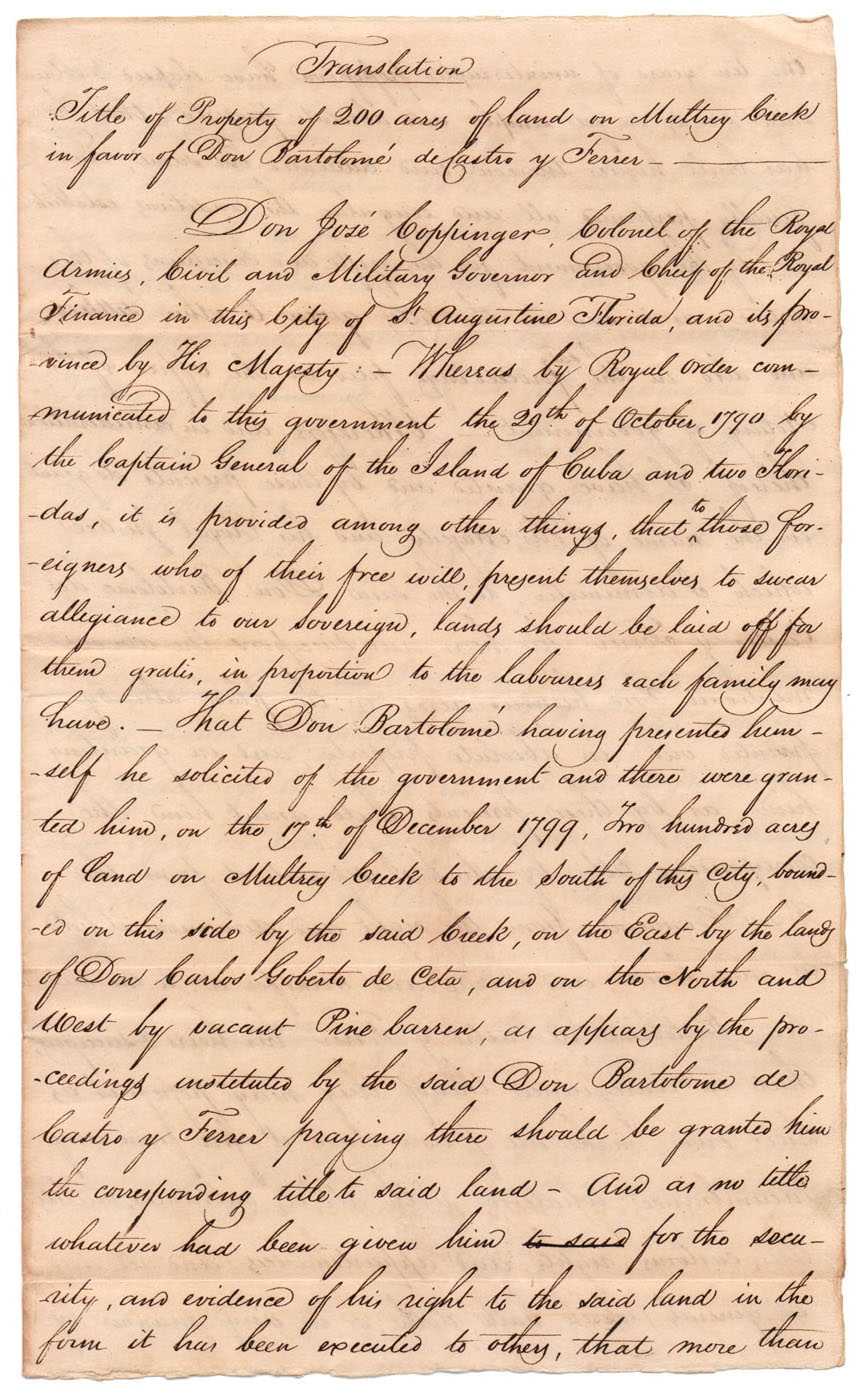 Translation
Title of Property of 200 acres of land on Multrey Creek
in favor of Don Bartolomé de Castro y Ferrer —
Don José Coppinger, Colonel of the Royal
Armies, Civil and Military Governor and Chief of the Royal
Finance in this City of St. Augustine Florida, and its pro-
-vince by His Majesty: — Whereas by Royal order com-
-municated to this government the 29th of October 1790 by
the Captain General of the Island of Cuba and two Flori-
-das, it is provided among other things, that to those for-
-eigners who of their free will, present themselves to swear
allegiance to our Sovereign, lands should be laid off for
them gratis, in proportion to the labourers each family may
have. — That Don Bartolomé having presented him-
-self he solicited of the government and there were gran-
ted him, on the 17th of December 1799, Two hundred acres
of Land on Multrey Creek to the South of this City, bound-
-ed on this side by the said Creek, on the East by the lands
of Don Carlos Goberto de Ceta, and on the North and
West by vacant Pine barren, as appears by the pro-
-ceedings instituted by the said Don Bartolome de
Castro y Ferrer praying there should be granted him
the corresponding title to said land — And as no title
whatever had been given him to said for the secu-
-rity, and evidence of his right to the said land in the
form it has been executed to others, that more than